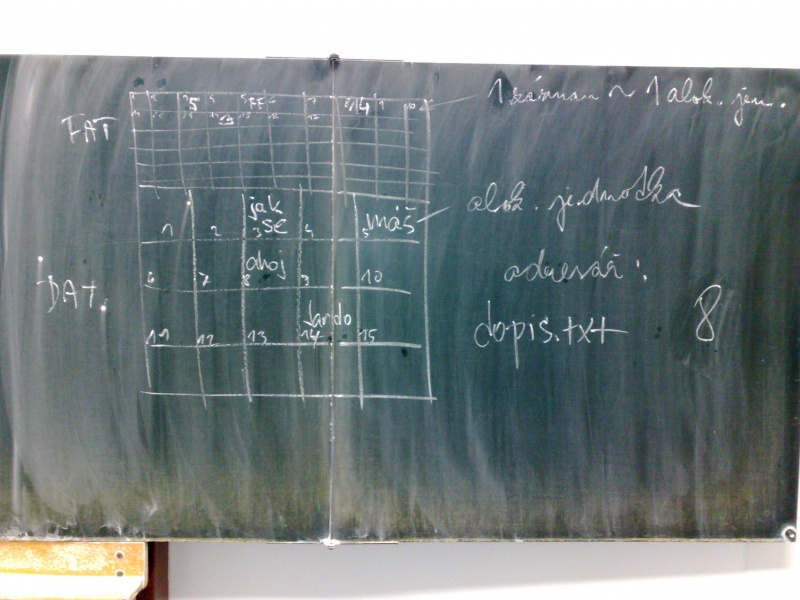 1 záznam ~ 1 alok. jen.
1 2 3 5 4 5 FF 6 7 8 14 9 10
FAT
alok. jednotka
1 2 3 jak se 4 5 máš
adresář:
6 7 8 ahoj 9 10
DAT.
dopis.txt 8
11 12 13 14 Jardo 15